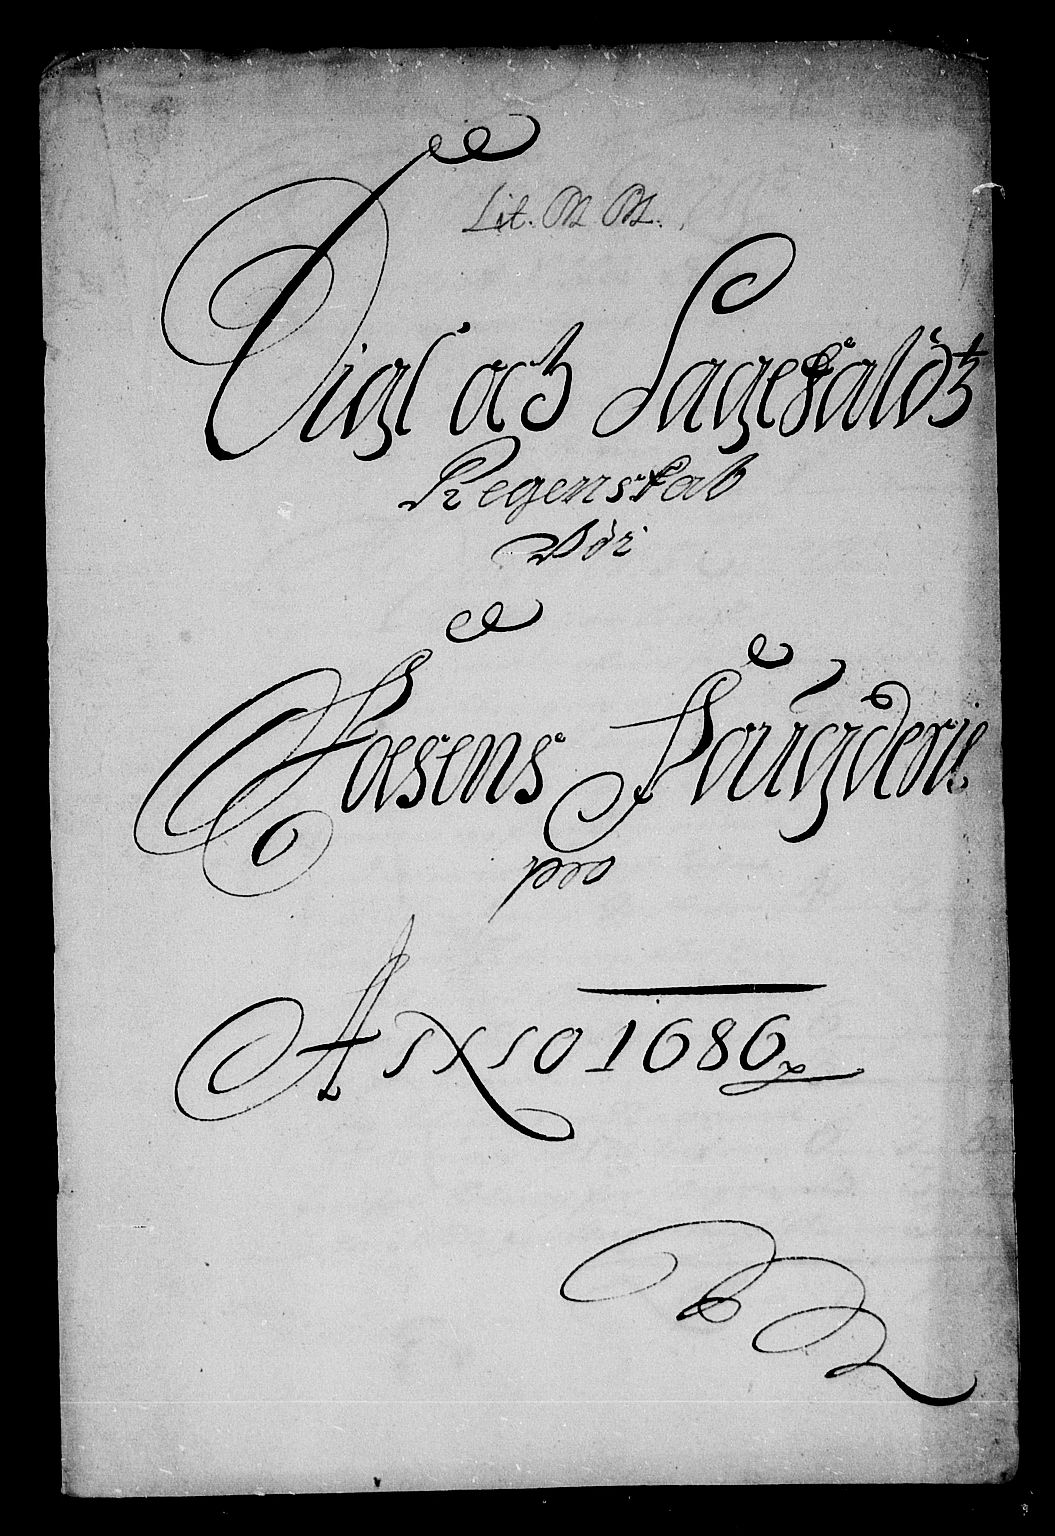 Lit. M M.
Vigl och Sagefaldtz
Regenskab
för
Fosens Fougderie
pro
Anno 1686